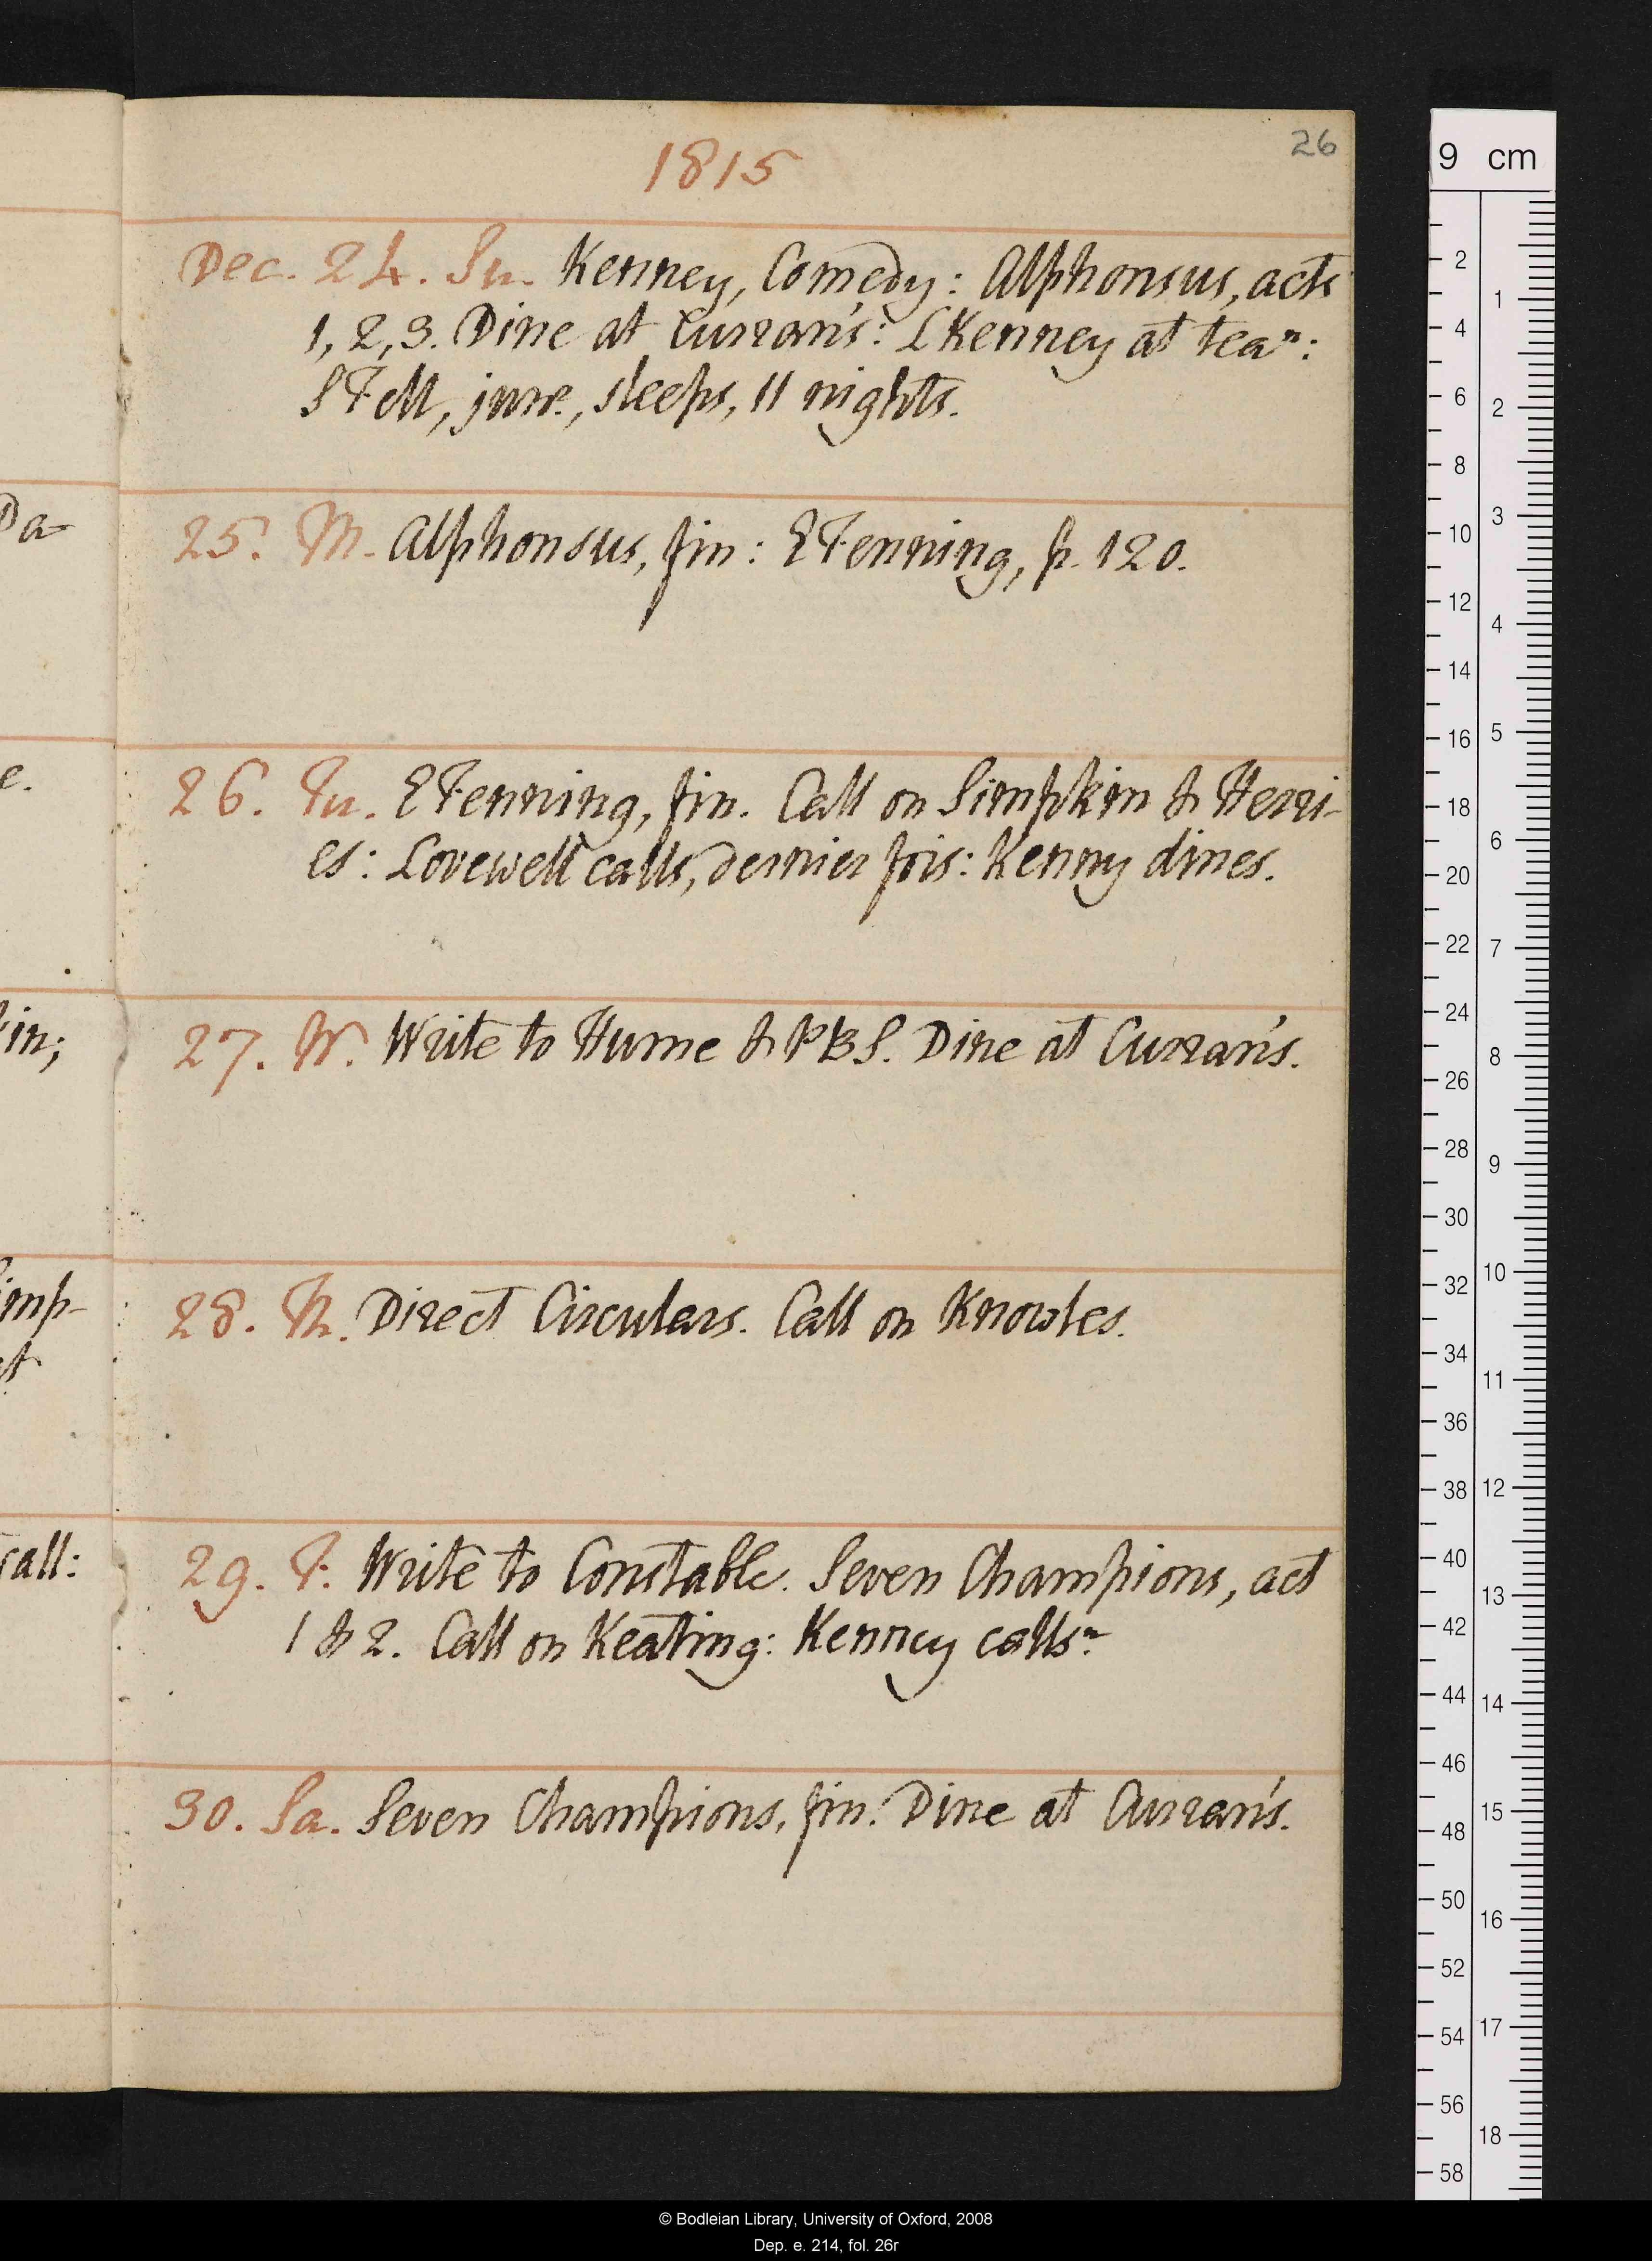 1815
26
Dec. 24. Su. Kenney, Comedy: Alphonsus, acts
1, 2, 3. Dine at Curran's: L Kenney at tea n:
S Fell, junr., sleeps, 11 nights.
25. M. Alphonsus, fin: E Fenning, p. 120.
26. Tu. E Fenning, fin. Call on Simpkin & Herri-
es: Lovewell calls, dernier fois: Kenny dines.
27. W. Write to Hume & PBS. Dine at Curran's.
28. Th. Direct Circulars. Call on Knowles.
29. F. Write to Constable. Seven Champions, act
1 & 2. Call on Keating: Kenney calls n.
30. Sa. Seven Champions, fin. Dine at Curran's.
Da-
e.
in;
imp-
call:
9 cm
2
4
6
8
10
12
14
16
18
20
22
24
26
28
30
32
34
36
38
40
42
44
46
48
50
52
54
56
58
1
2
3
4
5
6
7
8
9
10
11
12
13
14
15
16
17
18
© Bodleian Library, University of Oxford, 2008
Dep. e. 214, fol. 26r